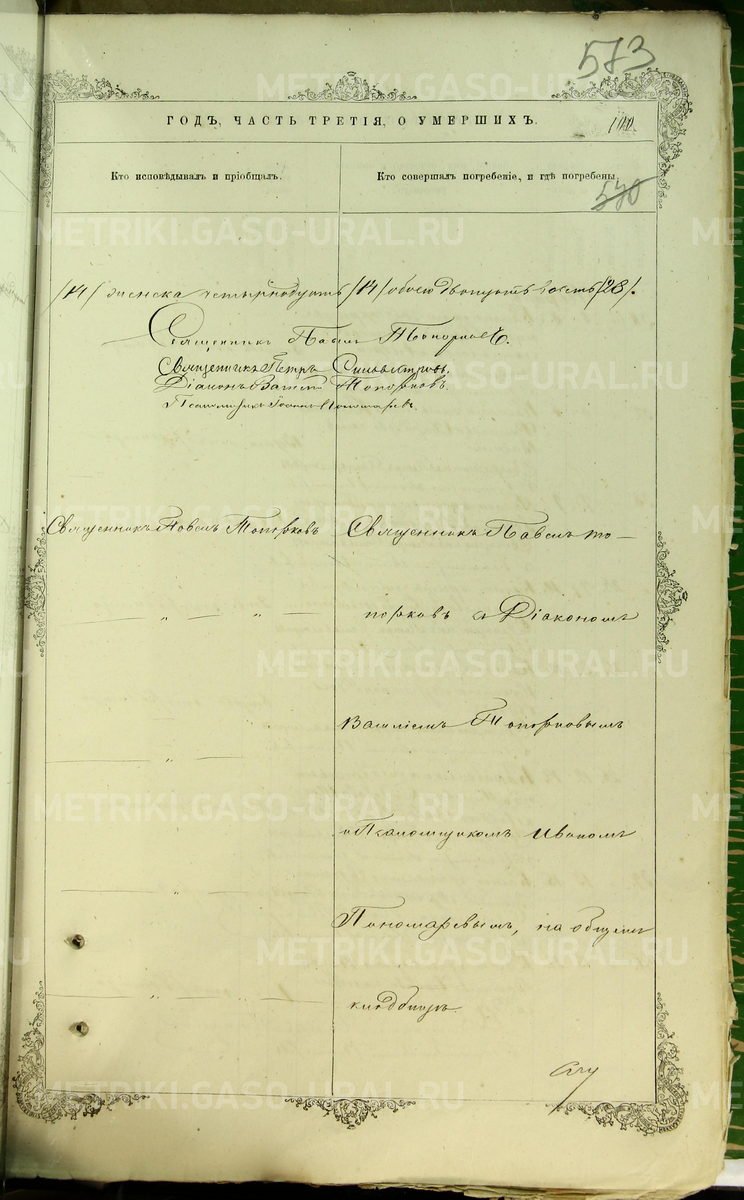 573
ГОДЪ, ЧАСТЬ ТРЕТІЯ, О УМЕРШИХЪ.
Кто исповѣдывалъ и пріобщалъ.
Кто совершалъ погребеніе, и гдѣ погребены.
570
/14/ женска четырнадцать /14/ обоего двадцать восемь /28/.
Священникъ Павелъ Топорковъ.
Священникъ Петръ
Діаконъ Василій Топорковъ.
Псаломщикъ Іоаннъ Пономаревъ
Священникъ Павелъ Топорковъ
Священникъ Павелъ То-
порковъ съ Діакономъ
Василіемъ Топорковымъ
и Псаломщикомъ Иваномъ
Пономаревымъ, на общемъ
кладбищѣ.
METRIKI.GASO-URAL.RU